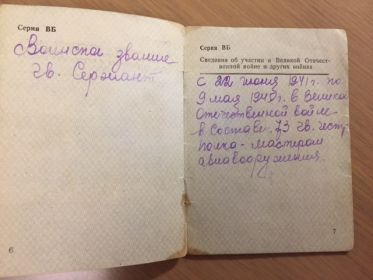 Серия ВБ
Воинское звание
гв. Сержант
6
Серия ВБ
Сведения об участии в Великой Отечест-
венной войне и других войнах
С 22 июня 1941г. по
9 мая 1945г. в Велико
Отечественной войне
в составе 73 гв. истр.
полка - мастером
авиавооружения.
7